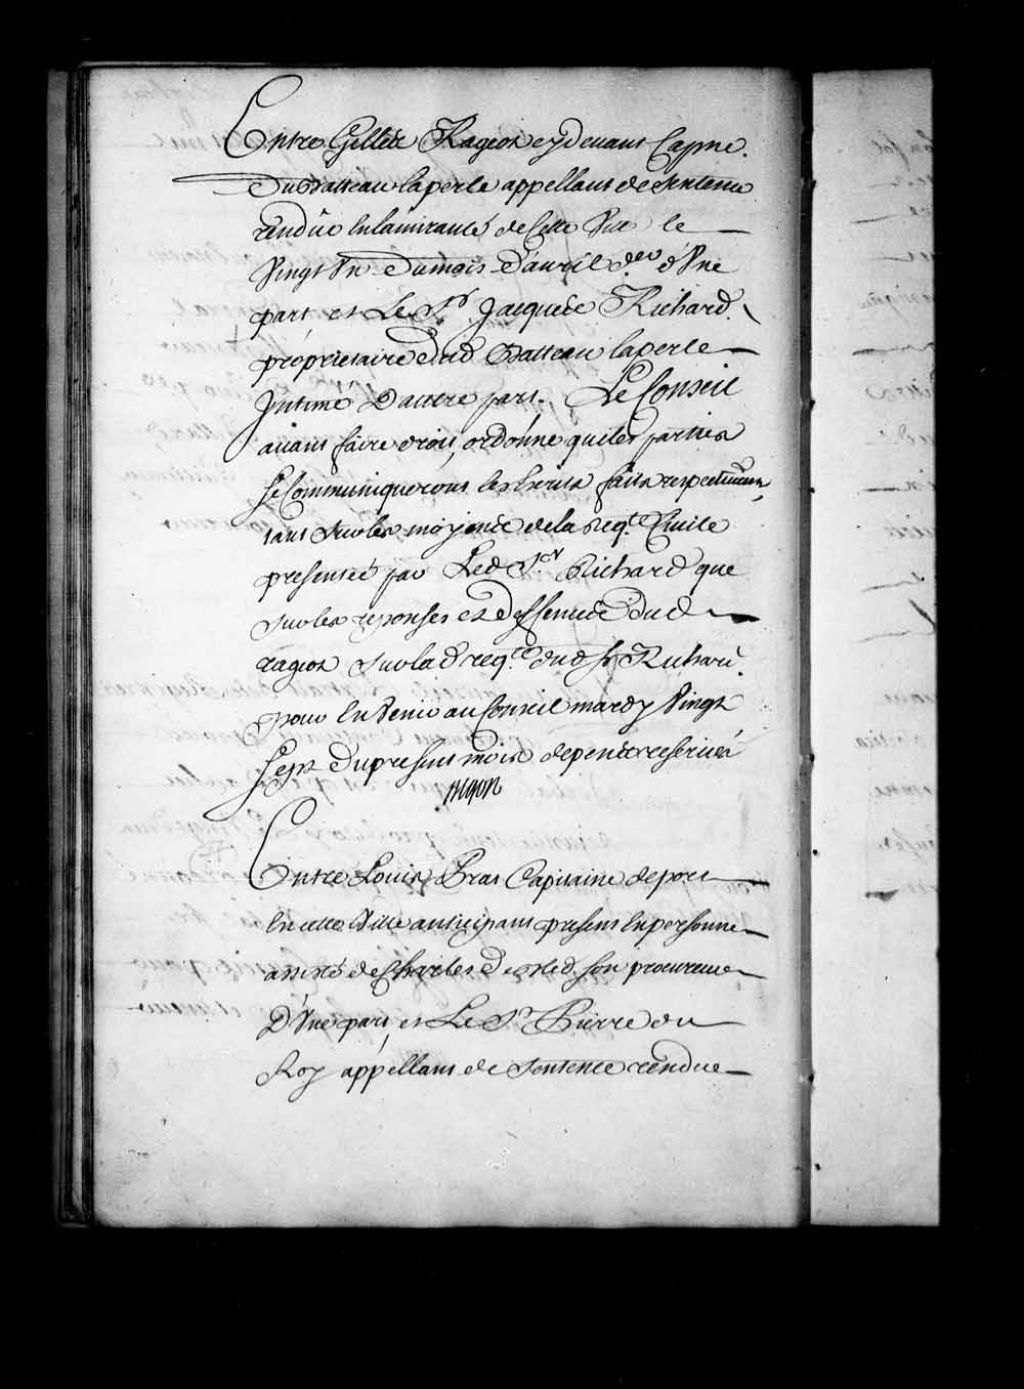 Entre Gilles Rageot cy devant Capne.
Du Batteau la perle appellant de Sentence
rendüe en lamirauté de Cette Ville le
Vingt Un du mois d'avril der d'Une
part et Le Sr. Jacques Richard
proprietaire dud Batteau la perle
Intimé D'autre part. Le Conseil
avant faire droit, ordonne que les parties
Se Communiqueront les Ecrits faits respectivemt,
tant Sur les moyens de la reqte Civile
presentée par Led Sr. Richard que
Sur les reponses et deffences Dud
ragiot Sur lad reqte. dud Sr Richard
pour En Venir au Conseil mardy Vingt
Sept Du present mois depens reservés
Begon
Entre Louis Pras Capitaine de port
En cette Ville anticipant present En personne
assisté de son procureur
D'Une part, et Le Sr Pierre du
Roy appellant de Sentence rendue